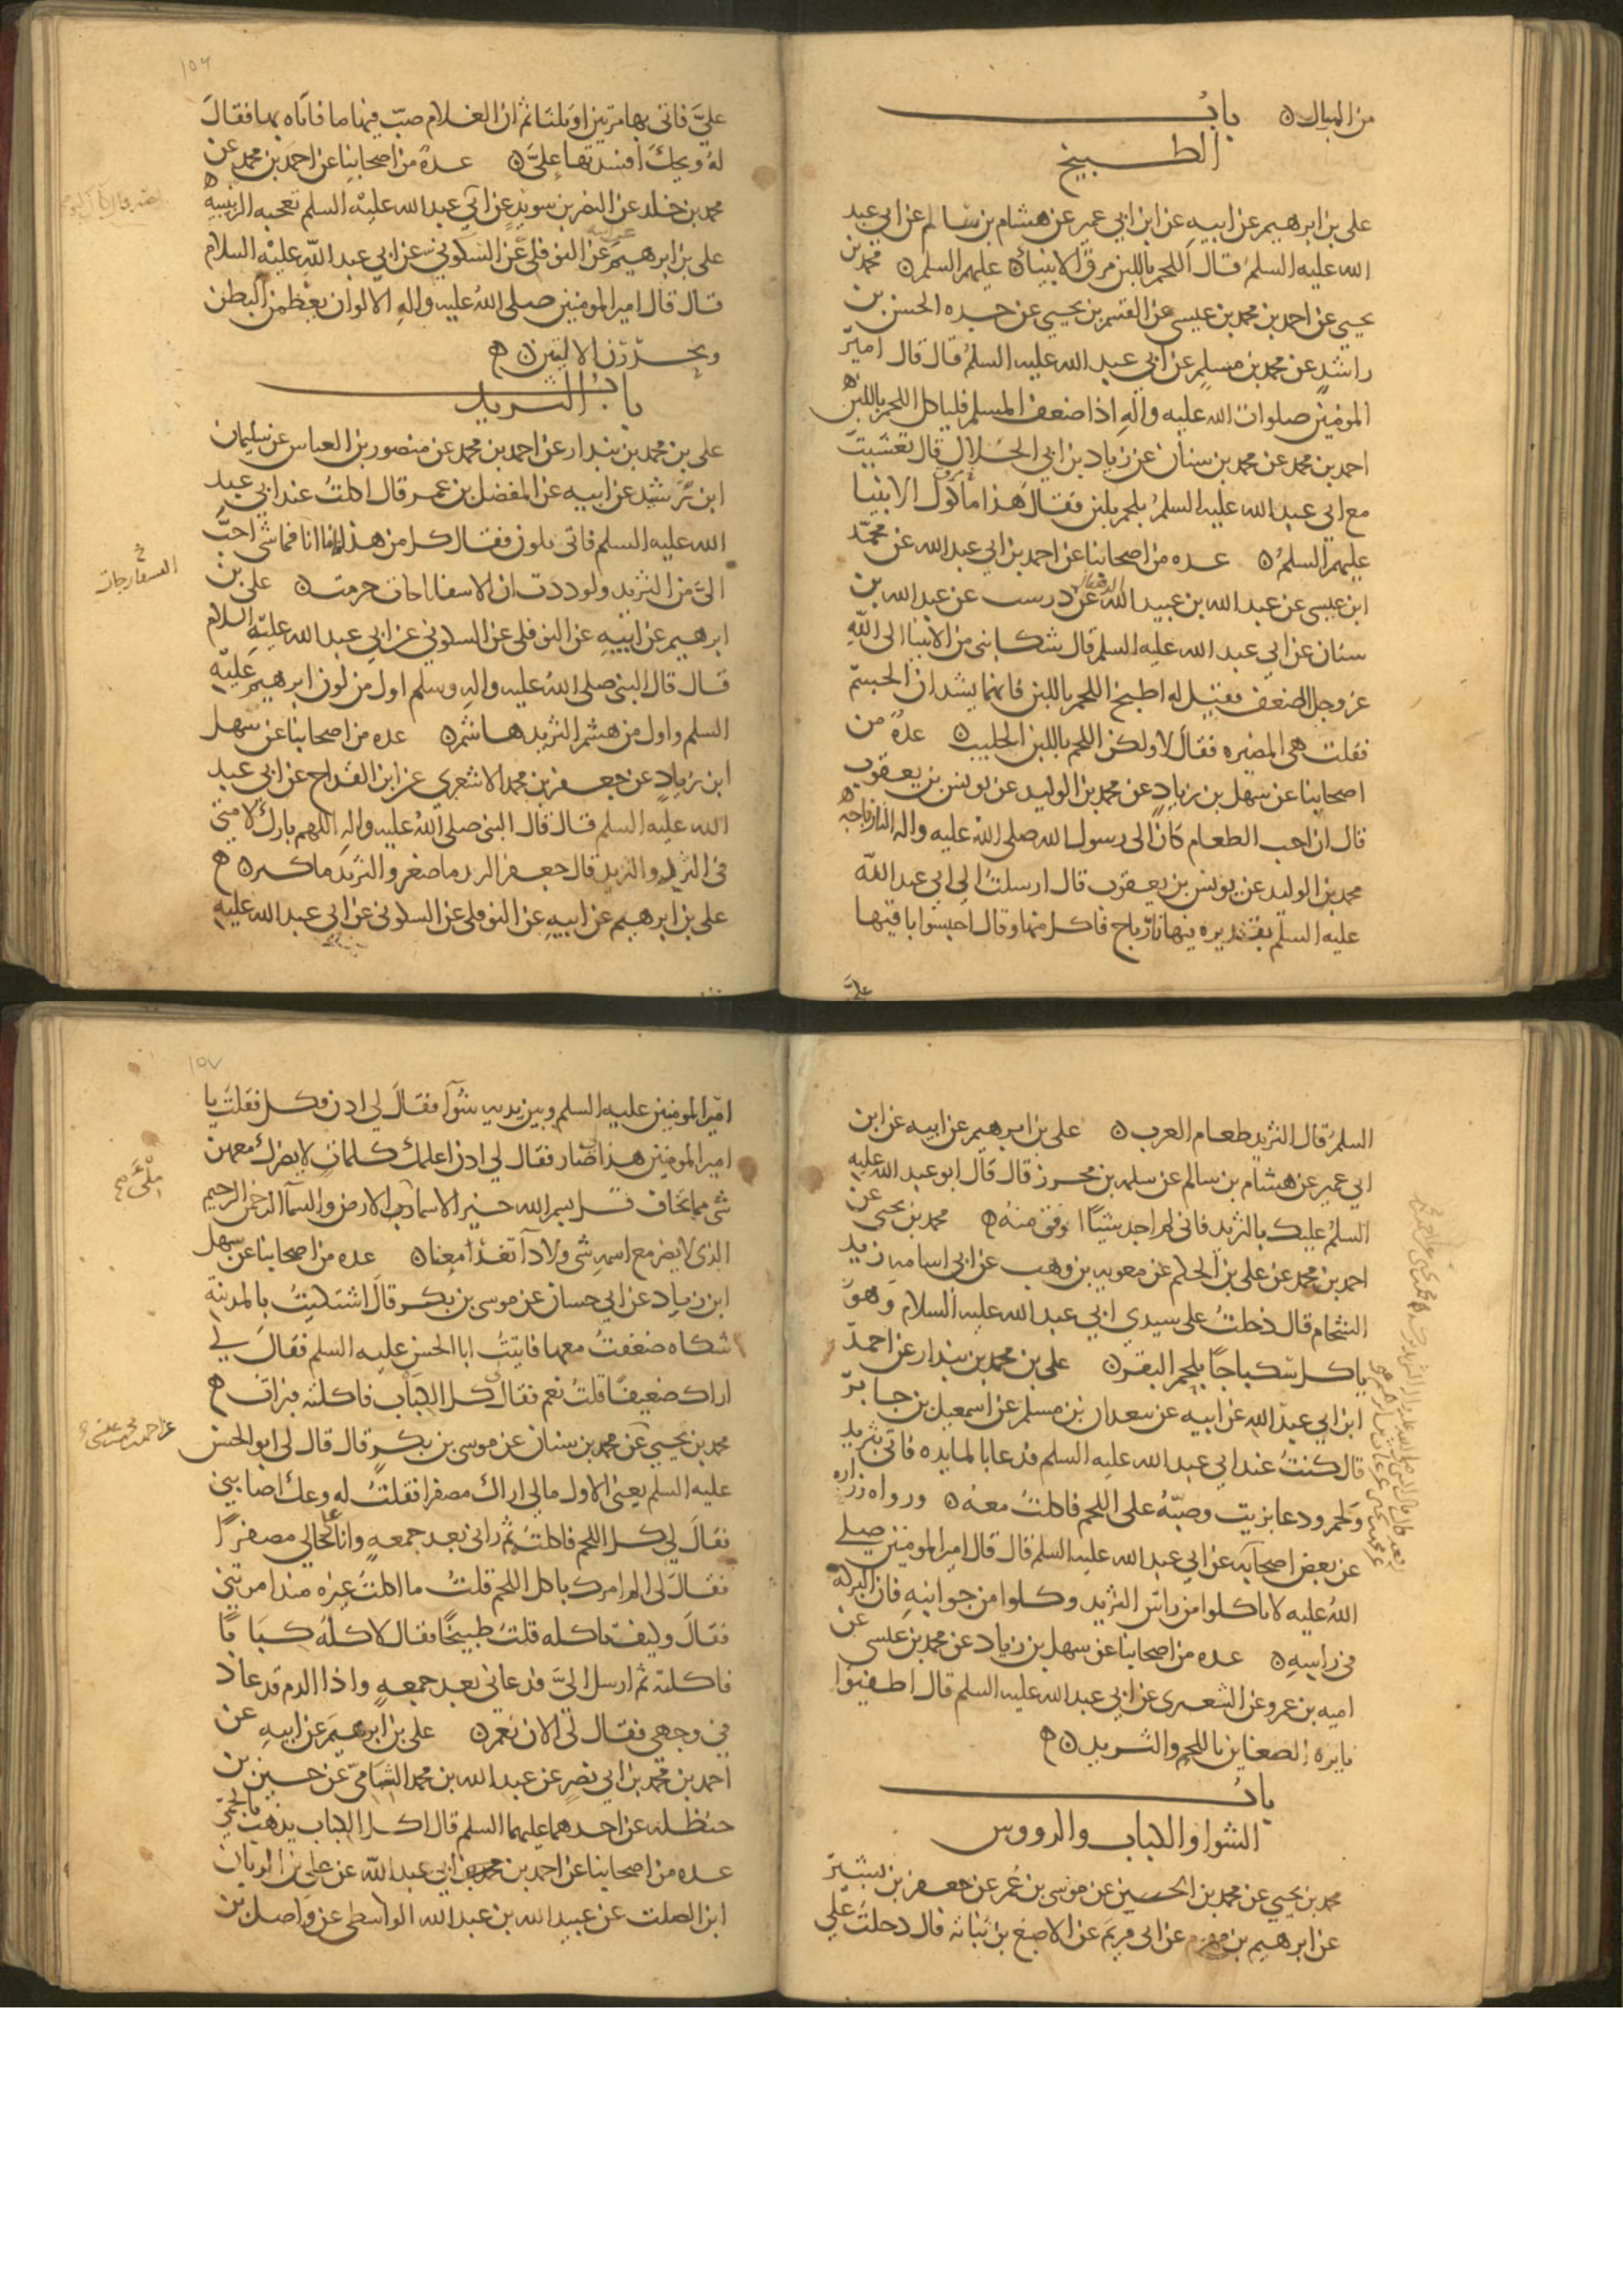 من المبال ه باب
الطبيخ
على بن ابرهيم عن ابيه عن ابن ابي عمير عن هشام بن سالم عن ابي عبد
الله عليه السلم قال اللحم باللبن مرق الانبياء عليهم السلم ه محمد بن
يحيى عن احمد بن محمد بن عيسى عن القسم بن يحيى عن جده الحسن بن
راشد عن محمد بن مسلم عن ابي عبد الله عليه السلم قال قال امير
المومنين صلوات الله عليه واله اذا ضعف المسلم فلياكل اللحم باللبن ه
احمد بن محمد عن محمد بن سنان عن زياد بن ابي الحلال قال تعشيت
مع ابي عبد الله عليه السلم بلحم بلبن فقال هذا مأكول الانبيا
عليهم السلم ه عده من اصحابنا عن احمد بن ابي عبد الله عن محمد
ابن عيسى عن عبد الله بن عبيد الله الدهقان عن درست عن عبد الله بن
سنان عن ابي عبد الله عليه السلم قال شكا نبي من الانبيا الى الله
عز وجل الضعف فقيل له اطبخ اللحم باللبن فانهما يشدان الجسم
فقلت هي المضيره فقال لا ولكن اللحم باللبن الحليب ه عدة من
اصحابنا عن سهل بن زياد عن محمد بن الوليد عن يونس بن يعقوب
قال ان احب الطعام كان الى رسول الله صلى الله عليه واله النارباجه ه
محمد بن الوليد عن يونس بن يعقوب قال ارسلنا الى ابي عبد الله
عليه السلم بقديره فيها نارباج فاكل منها وقال احبسوا باقيها
علي
١٥٦
علي فاتى بها مرتين او ثلثا ثم ان الغلام صب فيها ما فاتاه بها فقال
له ويحك افسدتها علي ه عدة من اصحابنا عن احمد بن محمد عن
محمد بن خلد عن النضر بن سويد عن ابي عبد الله عليه السلم تعجبه الزبيبيه ه
على بن ابرهيم عن ابيه عن النوفلى عن السكوني عن ابي عبد الله عليه السلام
قال قال امير المومنين صلى الله عليه واله الالوان يعظمن البطن
ويخدرن الاليتين ه
باب الثريد
على بن محمد بن بندار عن احمد بن محمد عن منصور بن العباس عن سليمان
ابن رشيد عن ابيه عن المفضل بن عمر قال اكلت عند ابي عبد
الله عليه السلم فاتى بلون فقال كل من هذا فاما انا فما شي احب
الى من الثريد ولوددت ان الاسفاناجات حرمت ه على بن
السفارجات خ
ابرهيم عن ابيه عن النوفلى عن السكوني عن ابي عبد الله عليه السلام
قال قال النبي صلى الله عليه واله وسلم اول من لون ابرهيم عليه
السلم واول من هشم الثريد هاشم ه عده من اصحابنا عن سهل
ابن زياد عن جعفر بن محمد الاشعري عن ابن القداح عن ابي عبد
الله عليه السلم قال قال النبي صلى الله عليه واله اللهم بارك لامتي
في الثرد والثريد قال جعفر الثرد ما صغر والثريد ما كبر ه
على بن ابرهيم عن ابيه عن النوفلى عن السكوني عن ابي عبد الله عليه
السلم قال الثريد طعام العرب ه على بن ابرهيم عن ابيه عن ابن
ابي عمير عن هشام بن سالم عن سلمه بن محرز قال قال ابو عبد الله عليه
السلم عليك بالثريد فاني لم اجد شيئا اوفق منه ه محمد بن يحيى عن
احمد بن محمد عن على بن الحكم عن معويه بن وهب عن ابي اسامه زيد
الشحام قال دخلت على سيدي ابي عبد الله عليه السلام وهو
ياكل سكباجا بلحم البقر ه على بن محمد بن بندار عن احمد
ابن ابي عبد الله عن ابيه عن سعدان بن مسلم عن اسمعيل بن جابر
قال كنت عند ابي عبد الله عليه السلم فدعا بالمايده فاتى بثريد
ولحم ودعا بزيت وصبه على اللحم فاكلت معه ه ورواه زراره
عن بعض اصحابه عن ابي عبد الله عليه السلم قال قال امير المومنين صلى
الله عليه لا تاكلوا من راس الثريد وكلوا من جوانبه فان البركه
في راسه ه عده من اصحابنا عن سهل بن زياد عن محمد بن عيسى عن
اميه بن عمرو عن الشعيرى عن ابي عبد الله عليه السلم قال اطفيوا
نايره الضغاين باللحم والثريد ه
باب
الشوا والكباب والرووس
محمد بن يحيى عن محمد بن الحسين عن موسى بن عمر عن جعفر بن بشير
عن ابرهيم بن مهزم عن ابي مريم عن الاصبغ بن نباته قال دخلت على
١٥٧
امير المومنين عليه السلم وبين يديه شوآ فقال لي ادن فكل فقلت يا
امير المومنين هذا ضار فقال لي ادن اعلمك كلمات لا يضرك معهن
شي مما تخاف قل بسم الله خير الاسما رب الارض والسمآ الرحمن الرحيم
ملئ صح
الذي لا يضر مع اسمه شي ولا دآ تغدا معنا ه عده من اصحابنا عن سهل
ابن زياد عن ابي حسان عن موسى بن بكر قال اشتكيت بالمدينة
شكاه ضعفت معها فاتيت ابا الحسن عليه السلم فقال لي
اراك ضعيفا قلت نعم فقال كل الكباب فاكلته فبرات ه
محمد بن يحيى عن محمد بن سنان عن موسى بن بكر قال قال لي ابو الحسن
عن احمد بن محمد بن عيسى صح
عليه السلم يعني الاول مالي اراك مصفرا فقلت له وعك اصابني
فقال لي كل اللحم فاكلته ثم راني بعد جمعه وانا على حالي مصفرا
فقال لي الم امرك باكل اللحم قلت ما اكلت غيره منذ امرتني
فقال وكيف تاكله قلت طبيخا فقال لا كله كبابا
فاكلته ثم ارسل الي فدعاني بعد جمعه واذا الدم قد عاد
في وجهي فقال لي الان نعم ه على بن ابرهيم عن ابيه عن
احمد بن محمد بن ابي نصر عن عبد الله بن محمد الشامي عن حسين بن
حنظله عن احدهما عليهما السلم قال اكل الكباب يذهب بالحمى
عده من اصحابنا عن احمد بن محمد بن ابي عبد الله عن على بن الريان
ابن الصلت عن عبيد الله بن عبد الله الواسطى عن واصل بن